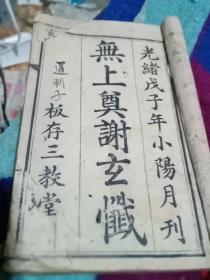 光緒戊子年小陽月刊
無上奠謝玄懺
板存三教堂